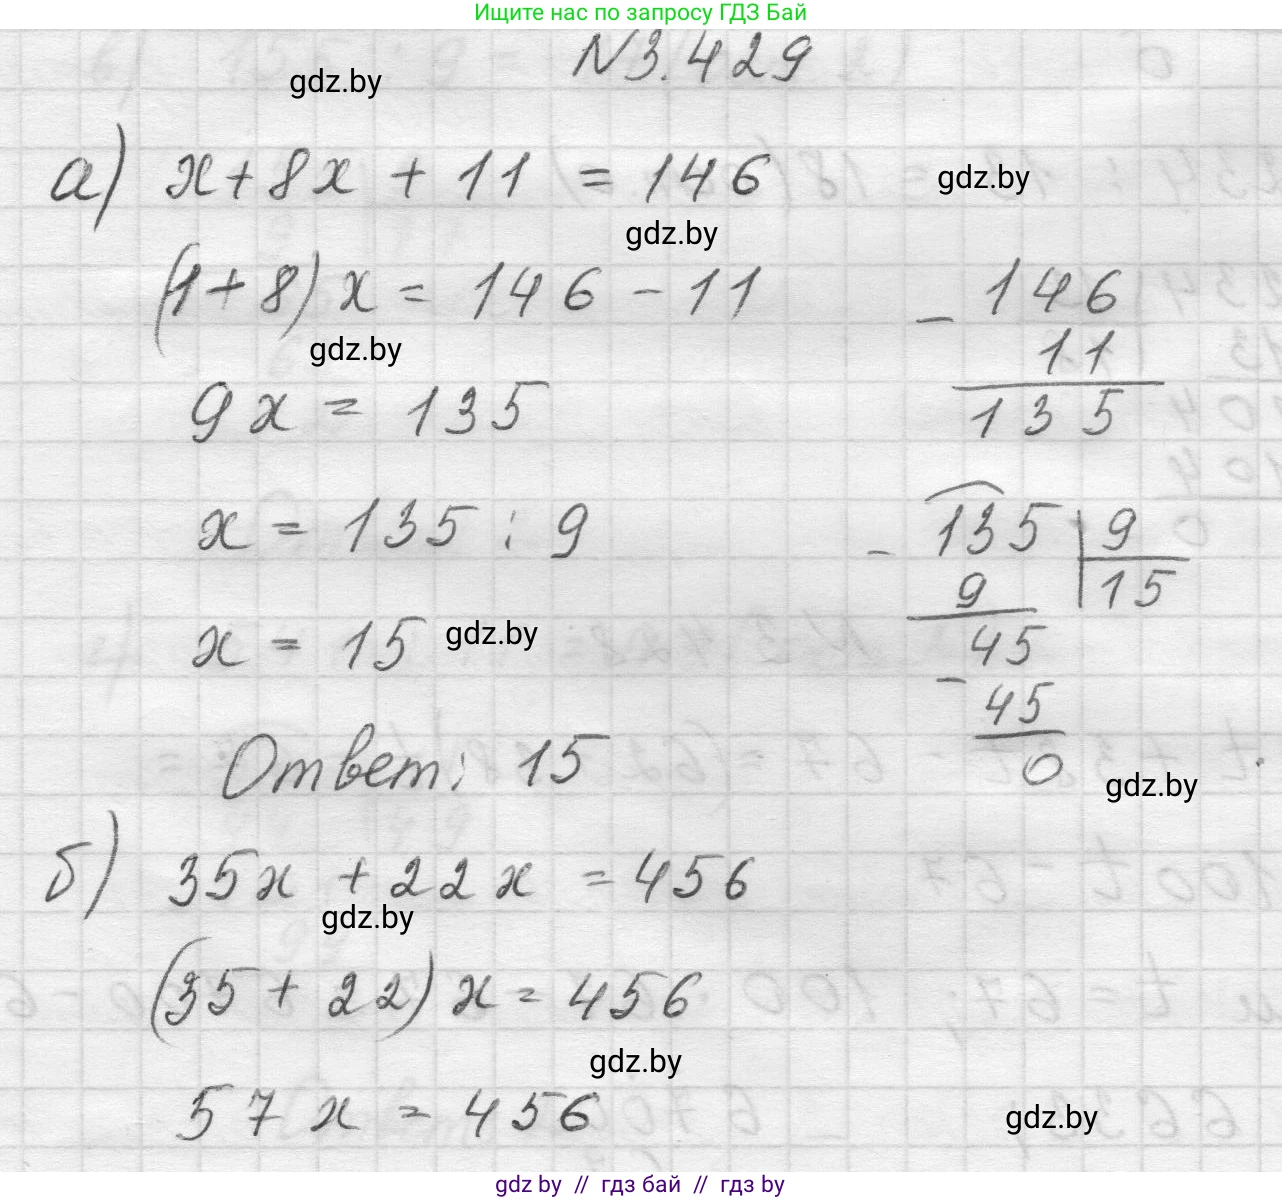 Ищите нас по запросу ГДЗ Бай
N3.429
gdz.by
а) x+8x + 11 = 146
gdz.by
gdz.by
(1+8) x = 146 - 11
- 146
11
gdz.by
135
9x = 135
x = 135 : 9
- 135 9
9 15
45
- 45
0
x = 15
gdz.by
Ответ: 15
gdz.by
б) 35x + 22x = 456
gdz.by
(35 + 22) x = 456
gdz.by
57x = 456
gdz.by
gdz by // гдз бай // gdz by